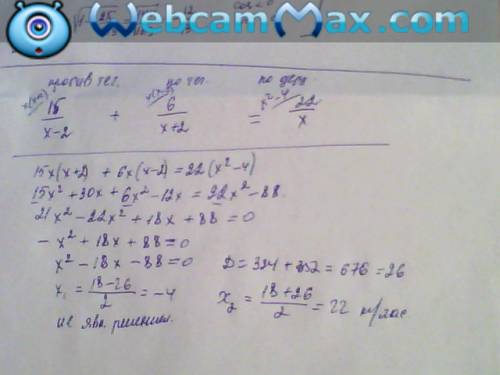 WebcamMax.com
cos < 0
против теч. по теч. по озеру
x(x+2) x(x-2) x²-4
15/(x-2) + 6/(x+2) = 22/x
15x(x+2) + 6x(x-2) = 22(x²-4)
15x² + 30x + 6x² - 12x = 22x² - 88.
21x² - 22x² + 18x + 88 = 0
- x² + 18x + 88 = 0
x² - 18x - 88 = 0 D = 324 + 352 = 676 = 26
x₁ = (18-26)/2 = -4 x₂ = (18+26)/2 = 22 км/час
не явл. решением.